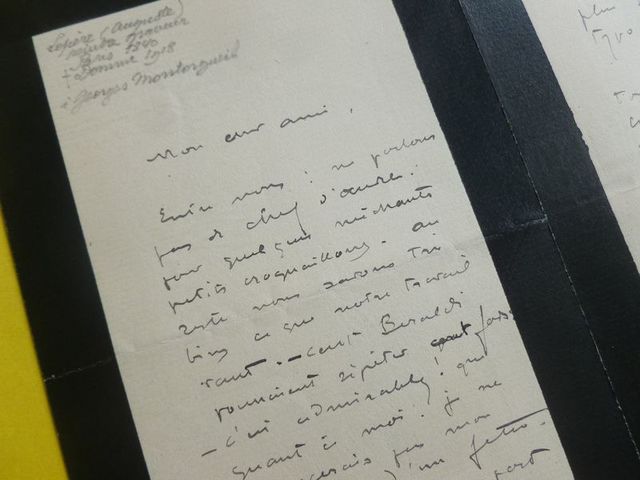 Lepère (Auguste)
peintre graveur
Paris 1849
† Domme 1918
à Georges Montorgueil
Mon cher ami,
Entre nous : ne parlons
pas de chef d'œuvre !
pour quelques méchants
petits croquaillons. au
reste nous savons très
bien ce que notre travail
vaut. – cent Beraldi
pourraient répéter cent fois
– c'est admirable ! que
quant à moi : je ne
pas mon
d'un
plus